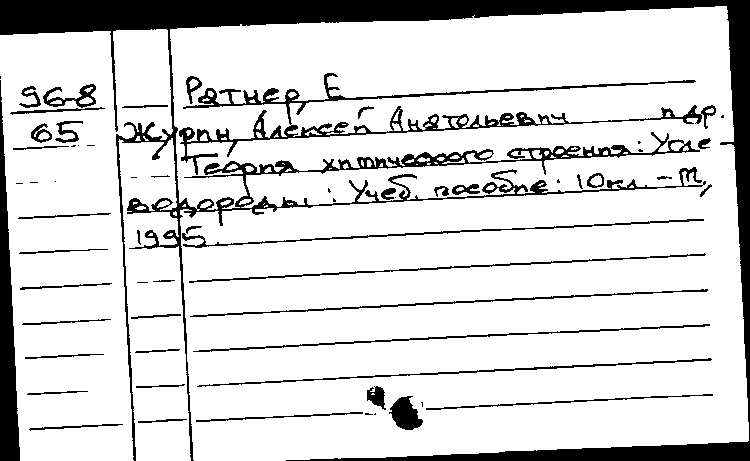 96-8 Ратнер, Е
65 Журин, Алексей Анатольевич и др.
Теория химического строения: Угле-
водороды: Учеб. пособие: 10 кл. - М,
1995.